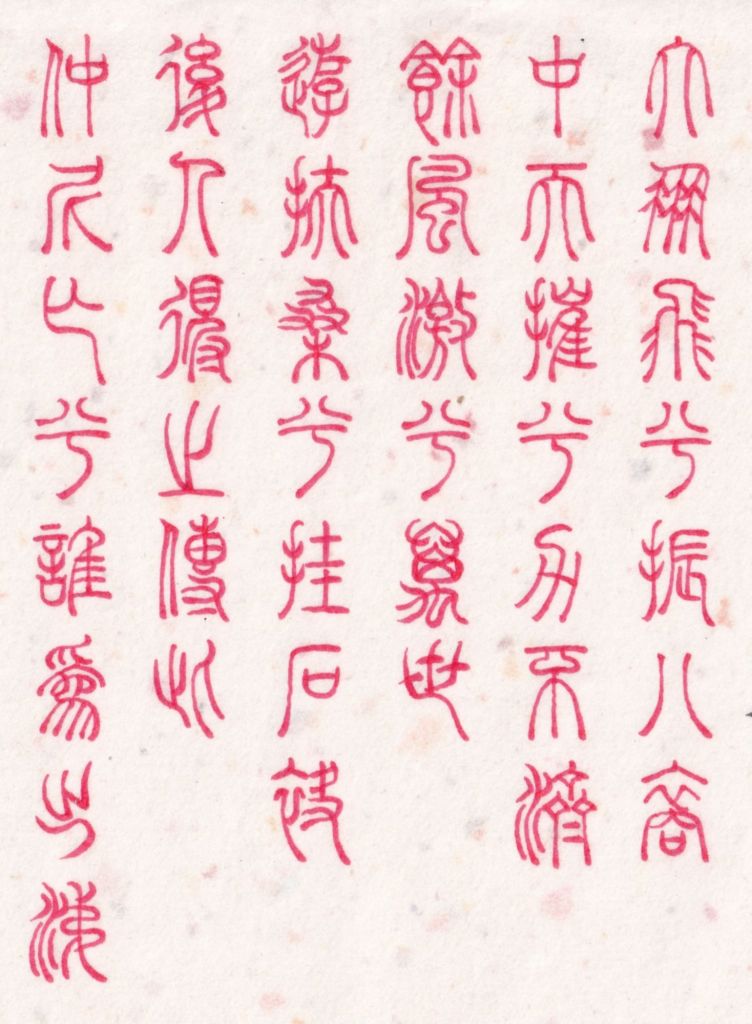 大鵬飛兮振八裔
中天摧兮力不濟
餘風激兮萬世
遊扶桑兮挂石袂
後人得之傳此
仲尼亡兮誰爲出涕